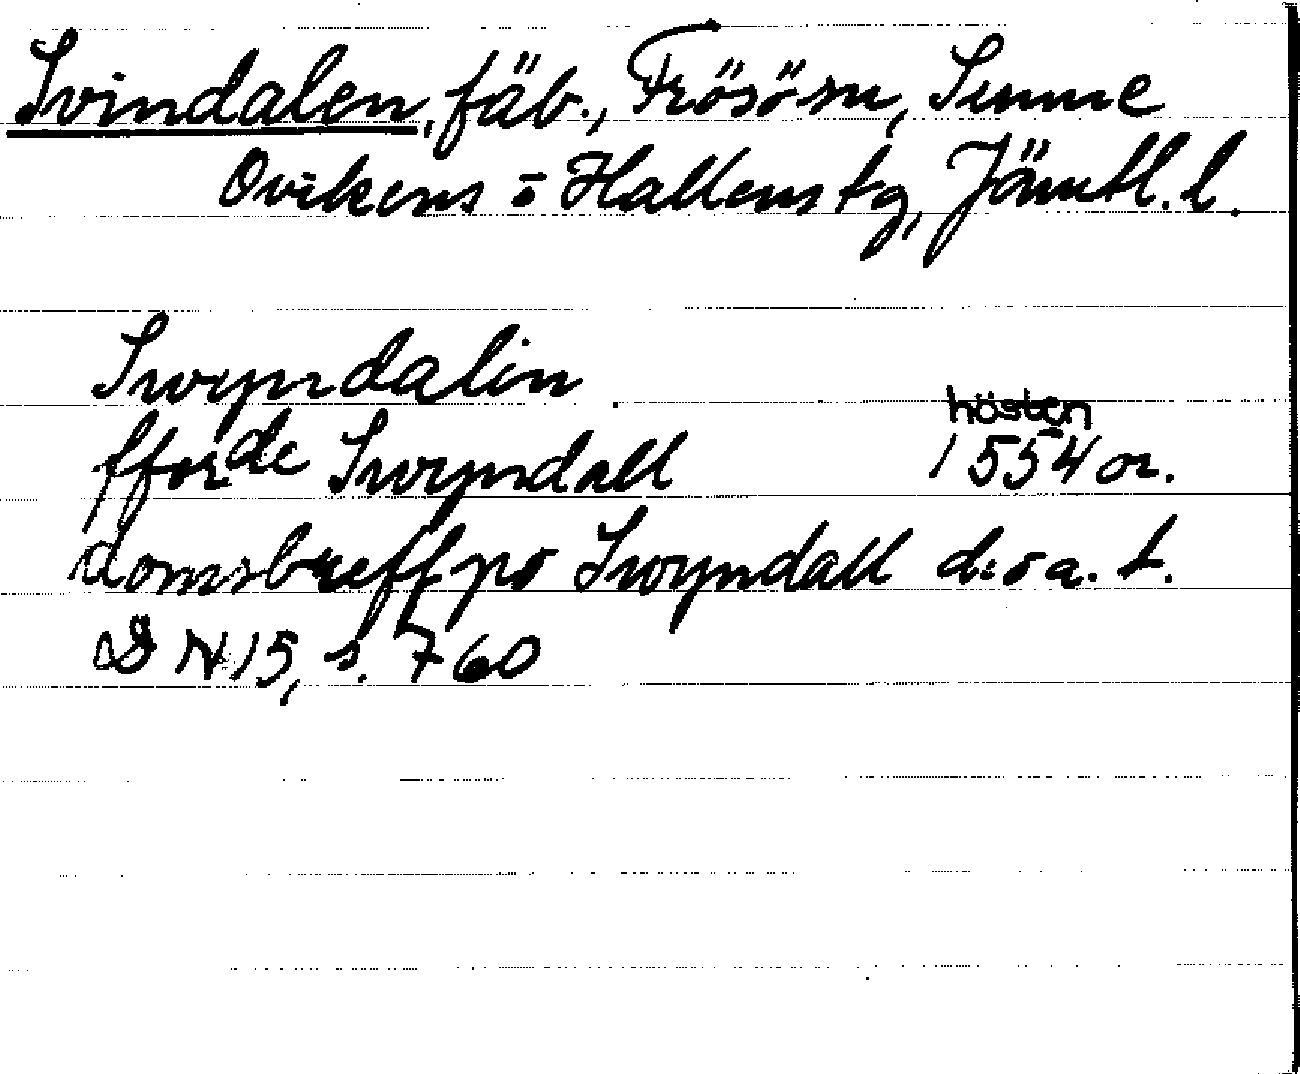 Svindalen, fäb., Frösön, Sunne
Ovikens o Hallens tg, Jämtl. l.
Swyndalin
hösten
fforde Swyndall 1554 or.
domsbreff po Swyndall d:o a. t.
DN 15, s. 760